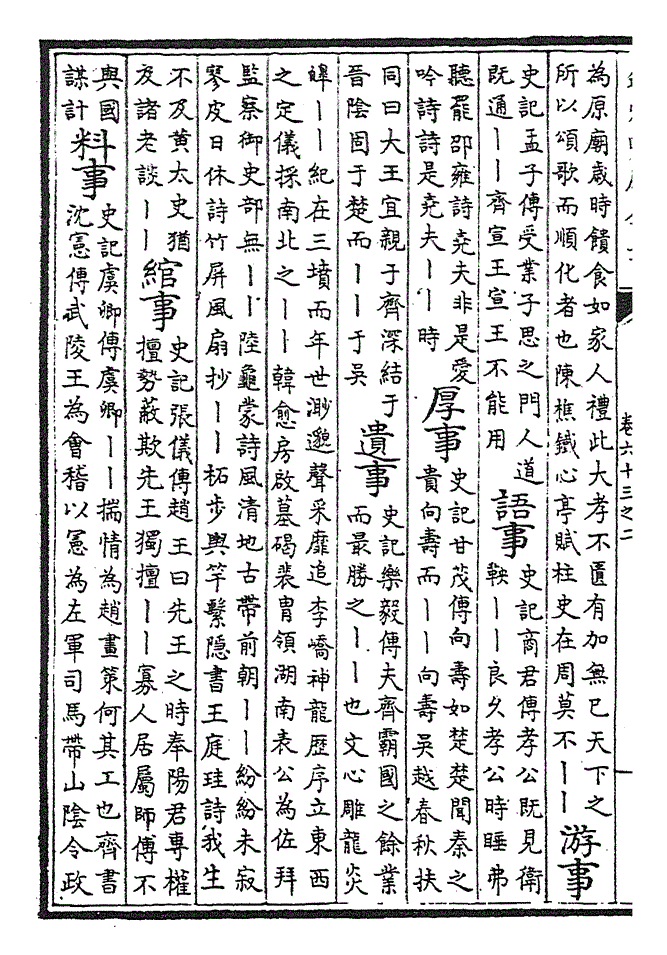 卷六十三之二
一
為原廟歲時饋食如家人禮此大孝不匱有加無已天下之
所以頌歌而順化者也陳樵鐵心亭賦柱史在周莫不丨丨
游事
史記孟子傳受業子思之門人道
既通丨丨齊宣王宣王不能用
語事
史記商君傳孝公既見衛
鞅丨丨良久孝公時睡弗
聽罷邵雍詩堯夫非是愛
吟詩詩是堯夫丨丨時
厚事
史記甘茂傳向壽如楚楚聞秦之
貴向壽而丨丨向壽吳越春秋扶
同曰大王宜親于齊深結于
晉陰固于楚而丨丨于吳
遺事
史記樂毅傳夫齊霸國之餘業
而最勝之丨丨也文心雕龍炎
皥丨丨紀在三墳而年世渺邈聲采靡追李嶠神龍歷序立東西
之定儀採南北之丨丨韓愈房啟墓碣裴冑領湖南表公為佐拜
監察御史部無丨丨陸龜蒙詩風清地古帶前朝丨丨紛紛未寂
寥皮日休詩竹屏風扇抄丨丨柘步輿竿繫隱書王庭珪詩我生
不及黃太史猶
及諸老談丨丨
綰事
史記張儀傳趙王曰先王之時奉陽君專權
擅勢蔽欺先王獨擅丨丨寡人居屬師傅不
與國
謀計
料事
史記虞卿傳虞卿丨丨揣情為趙畫策何其工也齊書
沈憲傳武陵王為會稽以憲為左軍司馬帶山陰令政